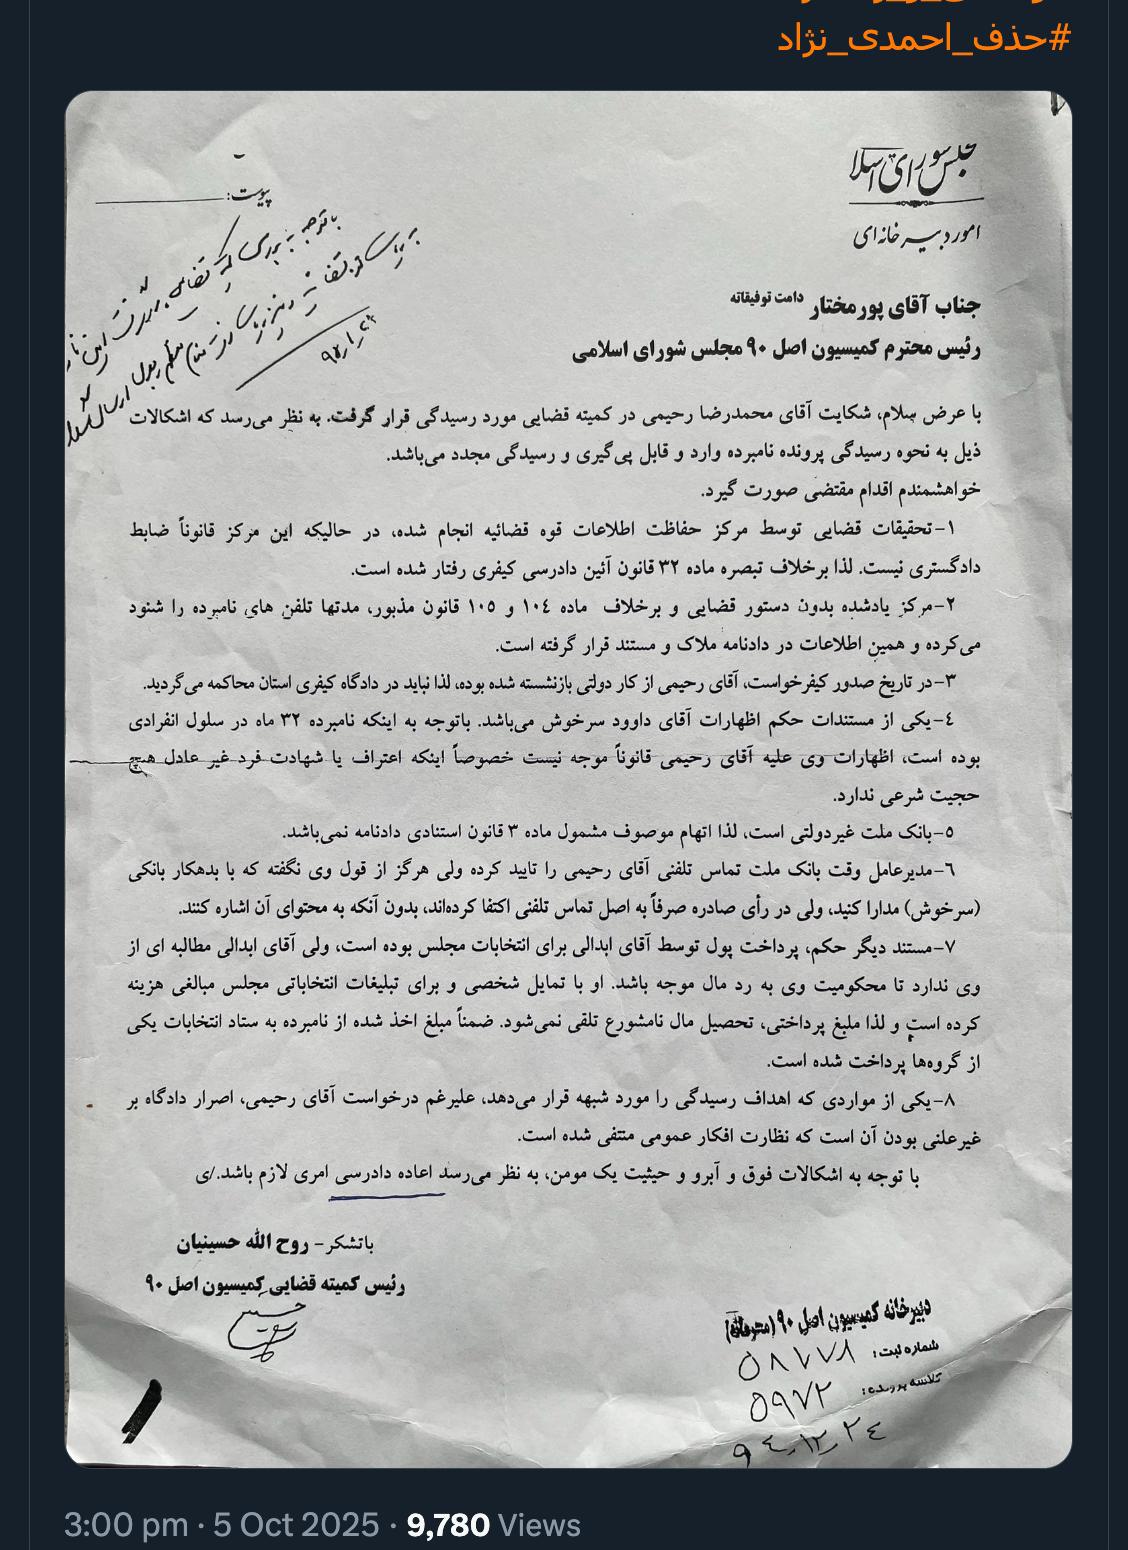 #حذف_احمدی_نژاد
مجلس شورای اسلا
امور دبیرخانه‌ای
پیوست:
جناب آقای پورمختار دامت توفیقاته
رئیس محترم کمیسیون اصل ۹۰ مجلس شورای اسلامی
با عرض سلام، شکایت آقای محمدرضا رحیمی در کمیته قضایی مورد رسیدگی قرار گرفت. به نظر می‌رسد که اشکالات
ذیل به نحوه رسیدگی پرونده نامبرده وارد و قابل پی‌گیری و رسیدگی مجدد می‌باشد.
خواهشمندم اقدام مقتضی صورت گیرد.
۱-تحقیقات قضایی توسط مرکز حفاظت اطلاعات قوه قضائیه انجام شده، در حالیکه این مرکز قانوناً ضابط
دادگستری نیست. لذا برخلاف تبصره ماده ۳۲ قانون آئین دادرسی کیفری رفتار شده است.
۲-مرکز یادشده بدون دستور قضایی و برخلاف ماده ۱۰٤ و ۱۰۵ قانون مذبور، مدتها تلفن های نامبرده را شنود
می‌کرده و همین اطلاعات در دادنامه ملاک و مستند قرار گرفته است.
۳-در تاریخ صدور کیفرخواست، آقای رحیمی از کار دولتی بازنشسته شده بوده، لذا نباید در دادگاه کیفری استان محاکمه می‌گردید.
٤-یکی از مستندات حکم اظهارات آقای داوود سرخوش می‌باشد. باتوجه به اینکه نامبرده ۳۲ ماه در سلول انفرادی
بوده است، اظهارات وی علیه آقای رحیمی قانوناً موجه نیست خصوصاً اینکه اعتراف یا شهادت فرد غیر عادل هیچ
حجیت شرعی ندارد.
۵-بانک ملت غیردولتی است، لذا اتهام موصوف مشمول ماده ۳ قانون استنادی دادنامه نمی‌باشد.
٦-مدیرعامل وقت بانک ملت تماس تلفنی آقای رحیمی را تایید کرده ولی هرگز از قول وی نگفته که با بدهکار بانکی
(سرخوش) مدارا کنید، ولی در رأی صادره صرفاً به اصل تماس تلفنی اکتفا کرده‌اند، بدون آنکه به محتوای آن اشاره کنند.
۷-مستند دیگر حکم، پرداخت پول توسط آقای ابدالی برای انتخابات مجلس بوده است، ولی آقای ابدالی مطالبه ای از
وی ندارد تا محکومیت وی به رد مال موجه باشد. او با تمایل شخصی و برای تبلیغات انتخاباتی مجلس مبالغی هزینه
کرده است و لذا ملبغ پرداختی، تحصیل مال نامشورع تلقی نمی‌شود. ضمناً مبلغ اخذ شده از نامبرده به ستاد انتخابات یکی
از گروه‌ها پرداخت شده است.
۸-یکی از مواردی که اهداف رسیدگی را مورد شبهه قرار می‌دهد، علیرغم درخواست آقای رحیمی، اصرار دادگاه بر
غیرعلنی بودن آن است که نظارت افکار عمومی منتفی شده است.
با توجه به اشکالات فوق و آبرو و حیثیت یک مومن، به نظر می‌رسد اعاده دادرسی امری لازم باشد./ی
باتشکر- روح الله حسینیان
رئیس کمیته قضایی کمیسیون اصل ۹۰
دبیرخانه کمیسیون اصل ۹۰ (محرمانه)
شماره ثبت: ۵۸۷۷۸
کلاسه پرونده: ۵۹۷۲
۹٤،۱۲،۲٤
3:00 pm · 5 Oct 2025 · 9,780 Views